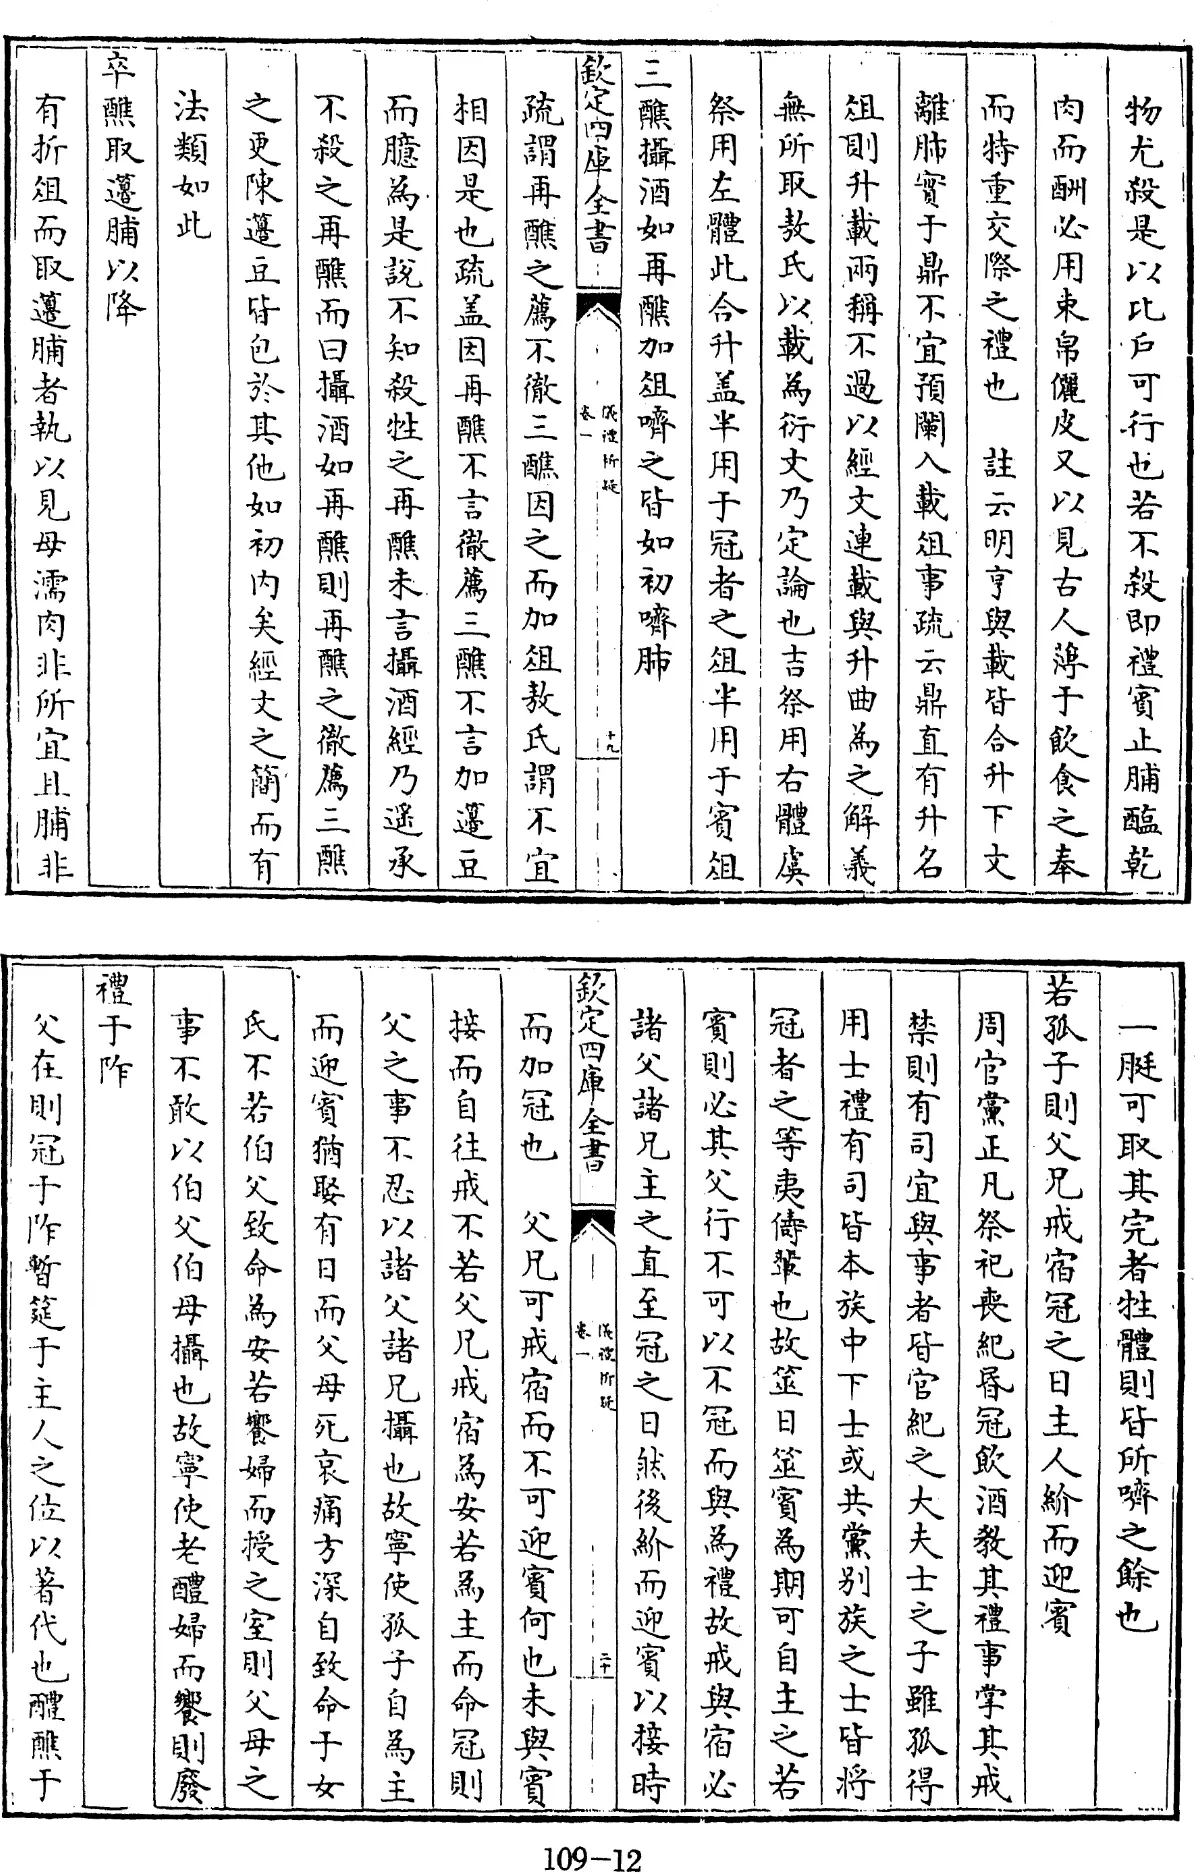 物尤殺是以比戶可行也若不殺即禮賓止脯醢乾
肉而酬必用束帛儷皮又以見古人薄于飲食之奉
而特重交際之禮也　註云明亨與載皆合升下文
離肺實于鼎不宜預闌入載俎事疏云鼎直有升名
俎則升載兩稱不過以經文連載與升曲為之解義
無所取敖氏以載為衍文乃定論也吉祭用右體虞
祭用左體此合升盖半用于冠者之俎半用于賓俎
三醮攝酒如再醮加俎嚌之皆如初嚌肺
欽定四庫全書
儀禮析疑
卷一
十九
疏謂再醮之薦不徹三醮因之而加俎敖氏謂不宜
相因是也疏盖因再醮不言徹薦三醮不言加籩豆
而臆為是説不知殺牲之再醮未言攝酒經乃遥承
不殺之再醮而曰攝酒如再醮則再醮之徹薦三醮
之更陳籩豆皆包於其他如初內矣經文之簡而有
法類如此
卒醮取籩脯以降
有折俎而取籩脯者執以見母濡肉非所宜且脯非
一脡可取其完者牲體則皆所嚌之餘也
若孤子則父兄戒宿冠之日主人紒而迎賓
周官黨正凡祭祀喪紀昏冠飲酒教其禮事掌其戒
禁則有司宜與事者皆官紀之大夫士之子雖孤得
用士禮有司皆本族中下士或共黨别族之士皆將
冠者之等夷儔輩也故筮日筮賓為期可自主之若
賓則必其父行不可以不冠而與為禮故戒與宿必
諸父諸兄主之直至冠之日然後紒而迎賓以接時
欽定四庫全書
儀禮析疑
卷一
二十
而加冠也　父兄可戒宿而不可迎賓何也未與賓
接而自往戒不若父兄戒宿為安若為主而命冠則
父之事不忍以諸父諸兄攝也故寧使孤子自為主
而迎賓猶娶有日而父母死哀痛方深自致命于女
氏不若伯父致命為安若饗婦而授之室則父母之
事不敢以伯父伯母攝也故寧使老醴婦而饗則廢
禮于阼
父在則冠于阼暫筵于主人之位以著代也醴醮于
109-12